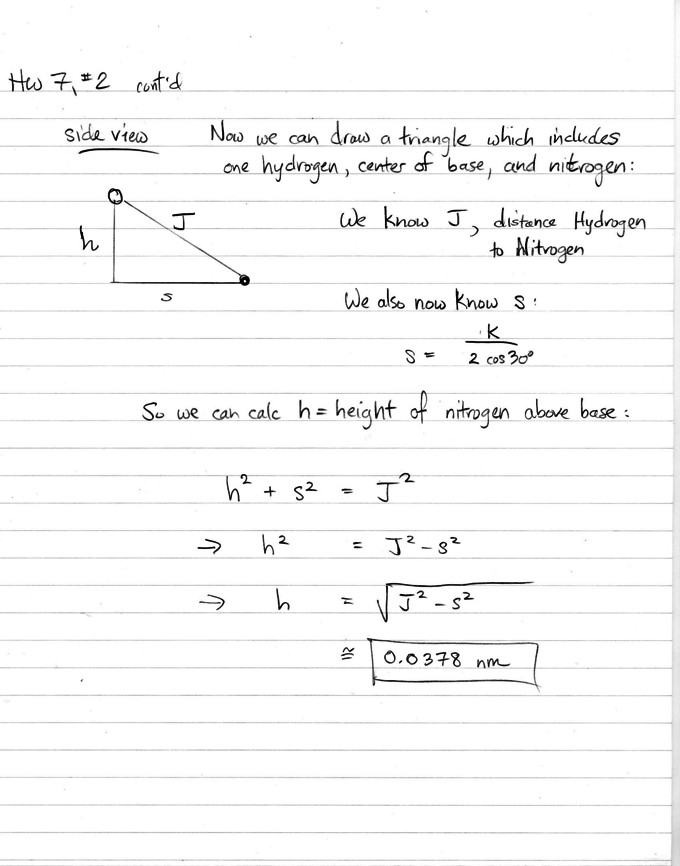 Hw 7, #2 cont'd
side view Now we can draw a triangle which includes
one hydrogen, center of base, and nitrogen:
J
h
s
We know J, distance Hydrogen
to Nitrogen
We also now know s:
s = K / 2 cos 30°
So we can calc h = height of nitrogen above base:
h² + s² = J²
→ h² = J² - s²
→ h = √J² - s²
≅ 0.0378 nm